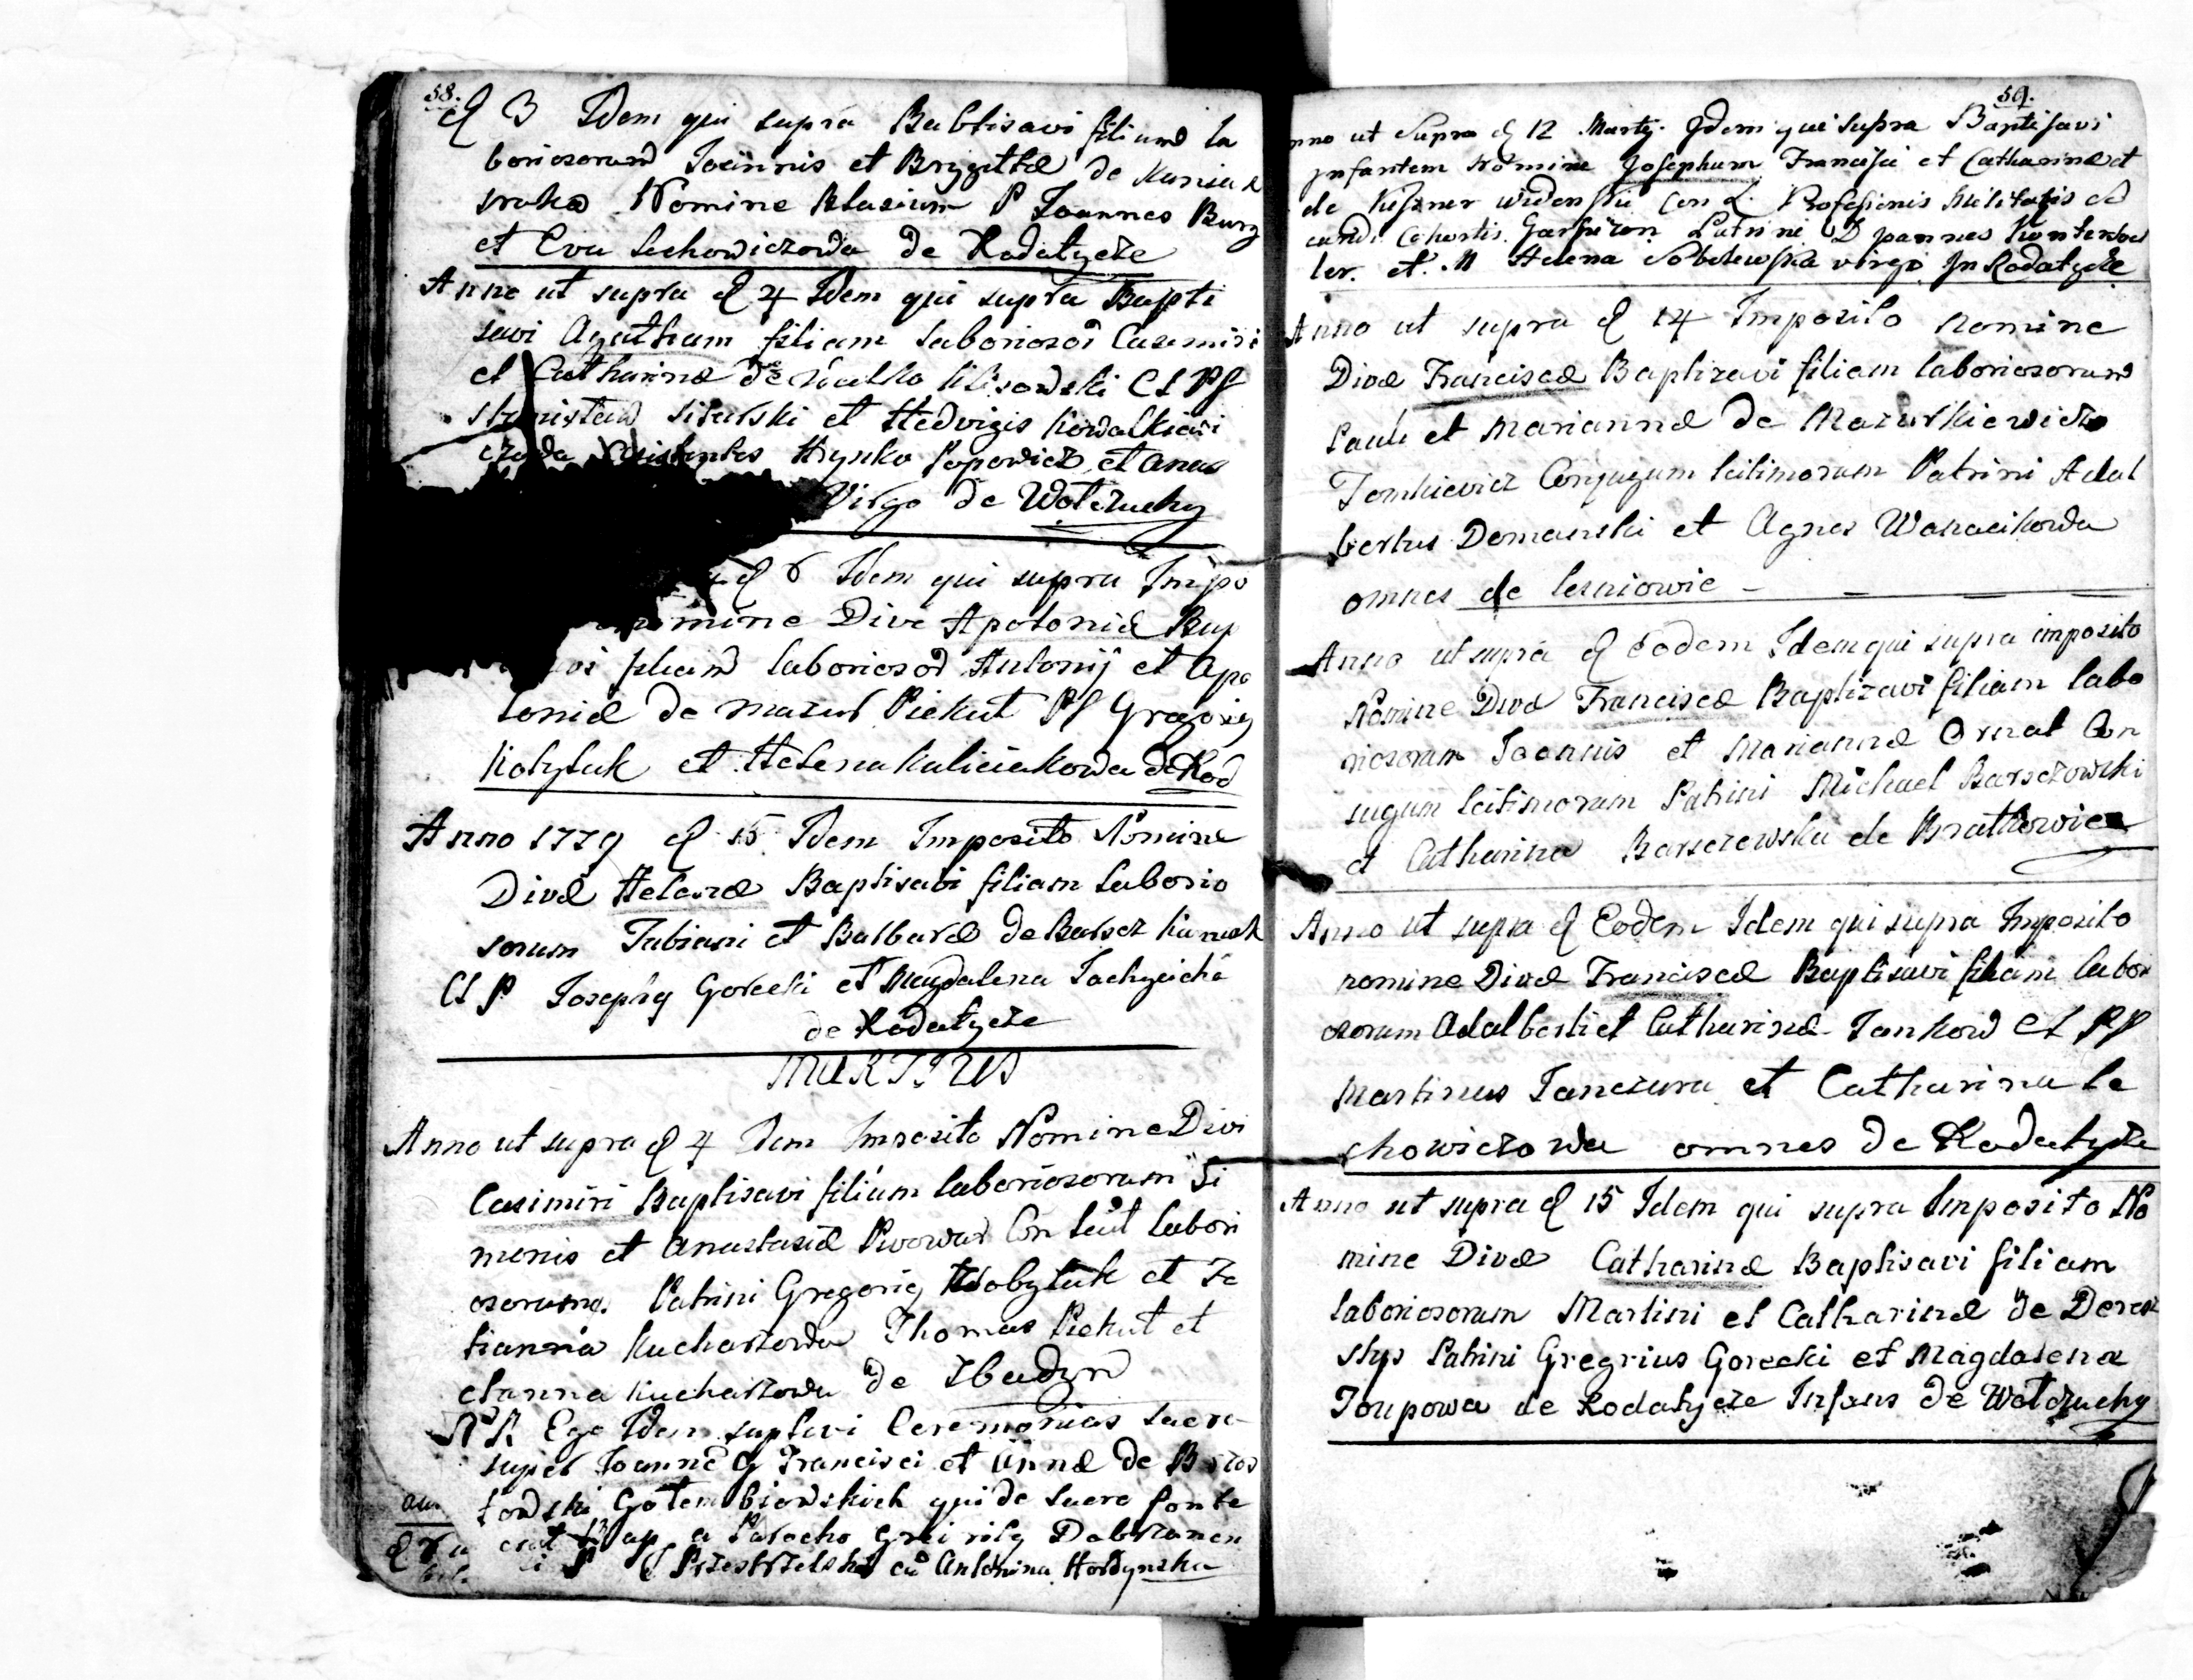 58.
d 3 Idem qui supra Babtisavi filium la
boriosorum Joannis et Brygittæ de
Nomine Blasium P Joannes Burg
et Eva Lechowiczowa de Rodatycze
Anno ut supra d 4 Idem qui supra Bapti
savi Agatham filiam laboriosor Casimiri
et Catharinæ de Lisowski CL PP
Stanislaw Sikorski et Hedvigis Kowalkiewi
czowa Assistentes Hrynko Popowicz et Anas
Virgo de Wołczuchy
d 6 Idem qui supra Impo
nomine Dive Apoloniæ Bap
vi filiam laboriosor Antonij et Apo
loniæ de Mazur Piekut PP Gregorig
Kobyluk et Helena Kuliciakowa de Rod
Anno 1779 d 15 Idem Imposito Nomine
Divæ Helenæ Baptisavi filiam laborio
sorum Fabiani et Barbaræ de Barscz
CL P Josephg Gorecki et Magdalena
de Rodatycze
MARTIUS
Anno ut supra d 4 Idem Imposito Nomine Divi
Casimiri Baptisavi filium laboriosorum Si
meonis et Anastasiæ Piwowar Con Leit labori
osorum. Patrini Gregorig Kobyluk et Ta
tianna Kucharzowa Thomas Piekut et
Anna Kucharzowa de Zbadyn
Ego Idem suplevi Ceremonias sacra
super Joanne G Francisci et Annæ de
towski Gołembiowskich qui de sacro fonte
erat Bap a Parocho Dobrzanen
P Przestrzelski cu Antonina Hordynska
59.
nno ut Supra d 12 Martij. Idem qui supra Baptisavi
Infantem Nomine Josephum Francisci et Catharinæ et
de Kuszner Con L. Profesionis Militaris
Cohortis. Garnizon Patrini D Joannes
ler. et. M Helena Sobolewska virgo In Rodatycze
Anno ut supra d 14 Imposito Nomine
Divæ Franciscæ Baptizavi filiam laboriosorum
Pauli et Mariannæ de Mazurkiewicz
Tomkievicz Conjugum leitimorum Patrini Adal
bertus Domanski et Agnes Wanacikowa
omnes de Lesniowic
Anno ut supra d eodem Idem qui supra imposito
Nomine Divæ Franciscæ Baptizavi filiam labo
riosorum Joannis et Mariannæ Ornat Con
jugum leitimorum Patrini Michael Barsczowski
et Catharina Barsczewska de Bratkowice
Anno ut supra d Eodem Idem qui supra Imposito
nomine Divæ Franciscæ Baptisavi filiam labori
osorum Adalberti et Catharinæ Jankow CL PP
Martinus Janczura et Catharina Le
chowiczowa omnes de Rodatycze
Anno ut supra d 15 Idem qui supra Imposito No
mine Divæ Catharinæ Baptisavi filiam
laboriosorum Martini et Catharinæ de Deresz
Patrini Gregrius Gorecki et Magdalena
Joupowa de Rodatycze Infans de Wołczuchy